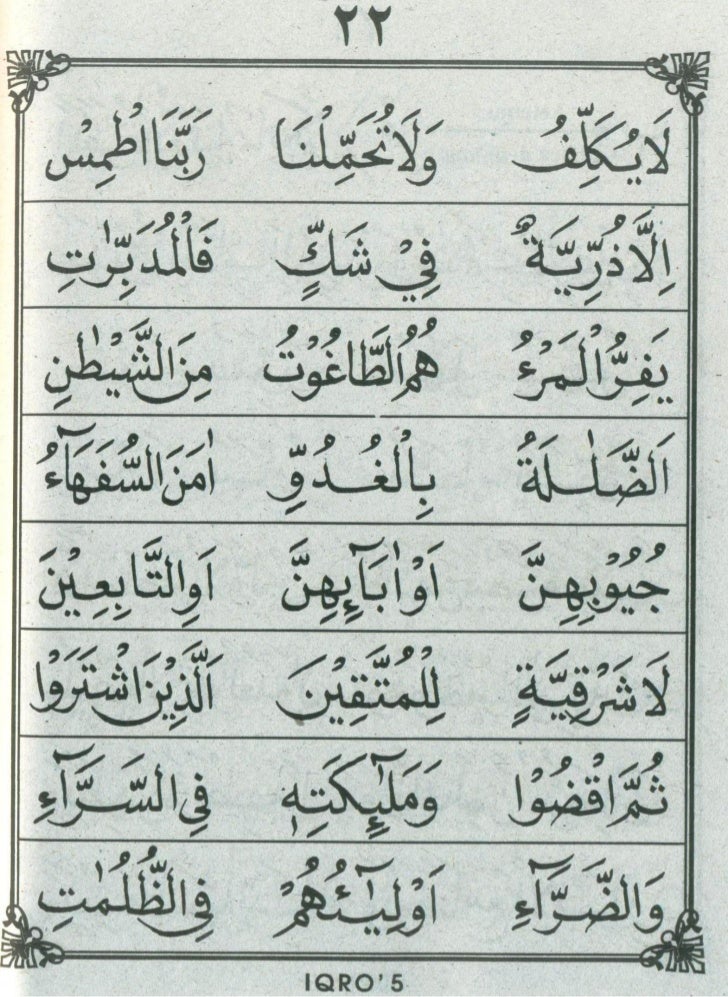 ٢٢
لَا يُكَلِّفُ وَلَا تُحَمِّلْنَا رَبَّنَا اطْمِسْ
اِلَّا ذُرِّيَّةٌ فِيْ شَكٍّ فَالْمُدَبِّرٰتِ
يَفِرُّ الْمَرْءُ هُمُ الطَّاغُوْتُ مِنَ الشَّيْطٰنِ
اَلضَّلٰلَةُ بِالْغُدُوِّ اٰمَنَ السُّفَهَآءُ
جُيُوْبِهِنَّ اَوْ اٰبَآئِهِنَّ اَوِ التَّابِعِيْنَ
لَا شَرْقِيَّةٍ لِلْمُتَّقِيْنَ اَلَّذِيْنَ اشْتَرَوُا
ثُمَّ اقْضُوْا وَمَلٰٓئِكَتِهٖ فِي السَّرَّآءِ
وَالضَّرَّآءِ اَوْلِيٰٓئُهُمْ فِي الظُّلُمٰتِ
IQRO' 5